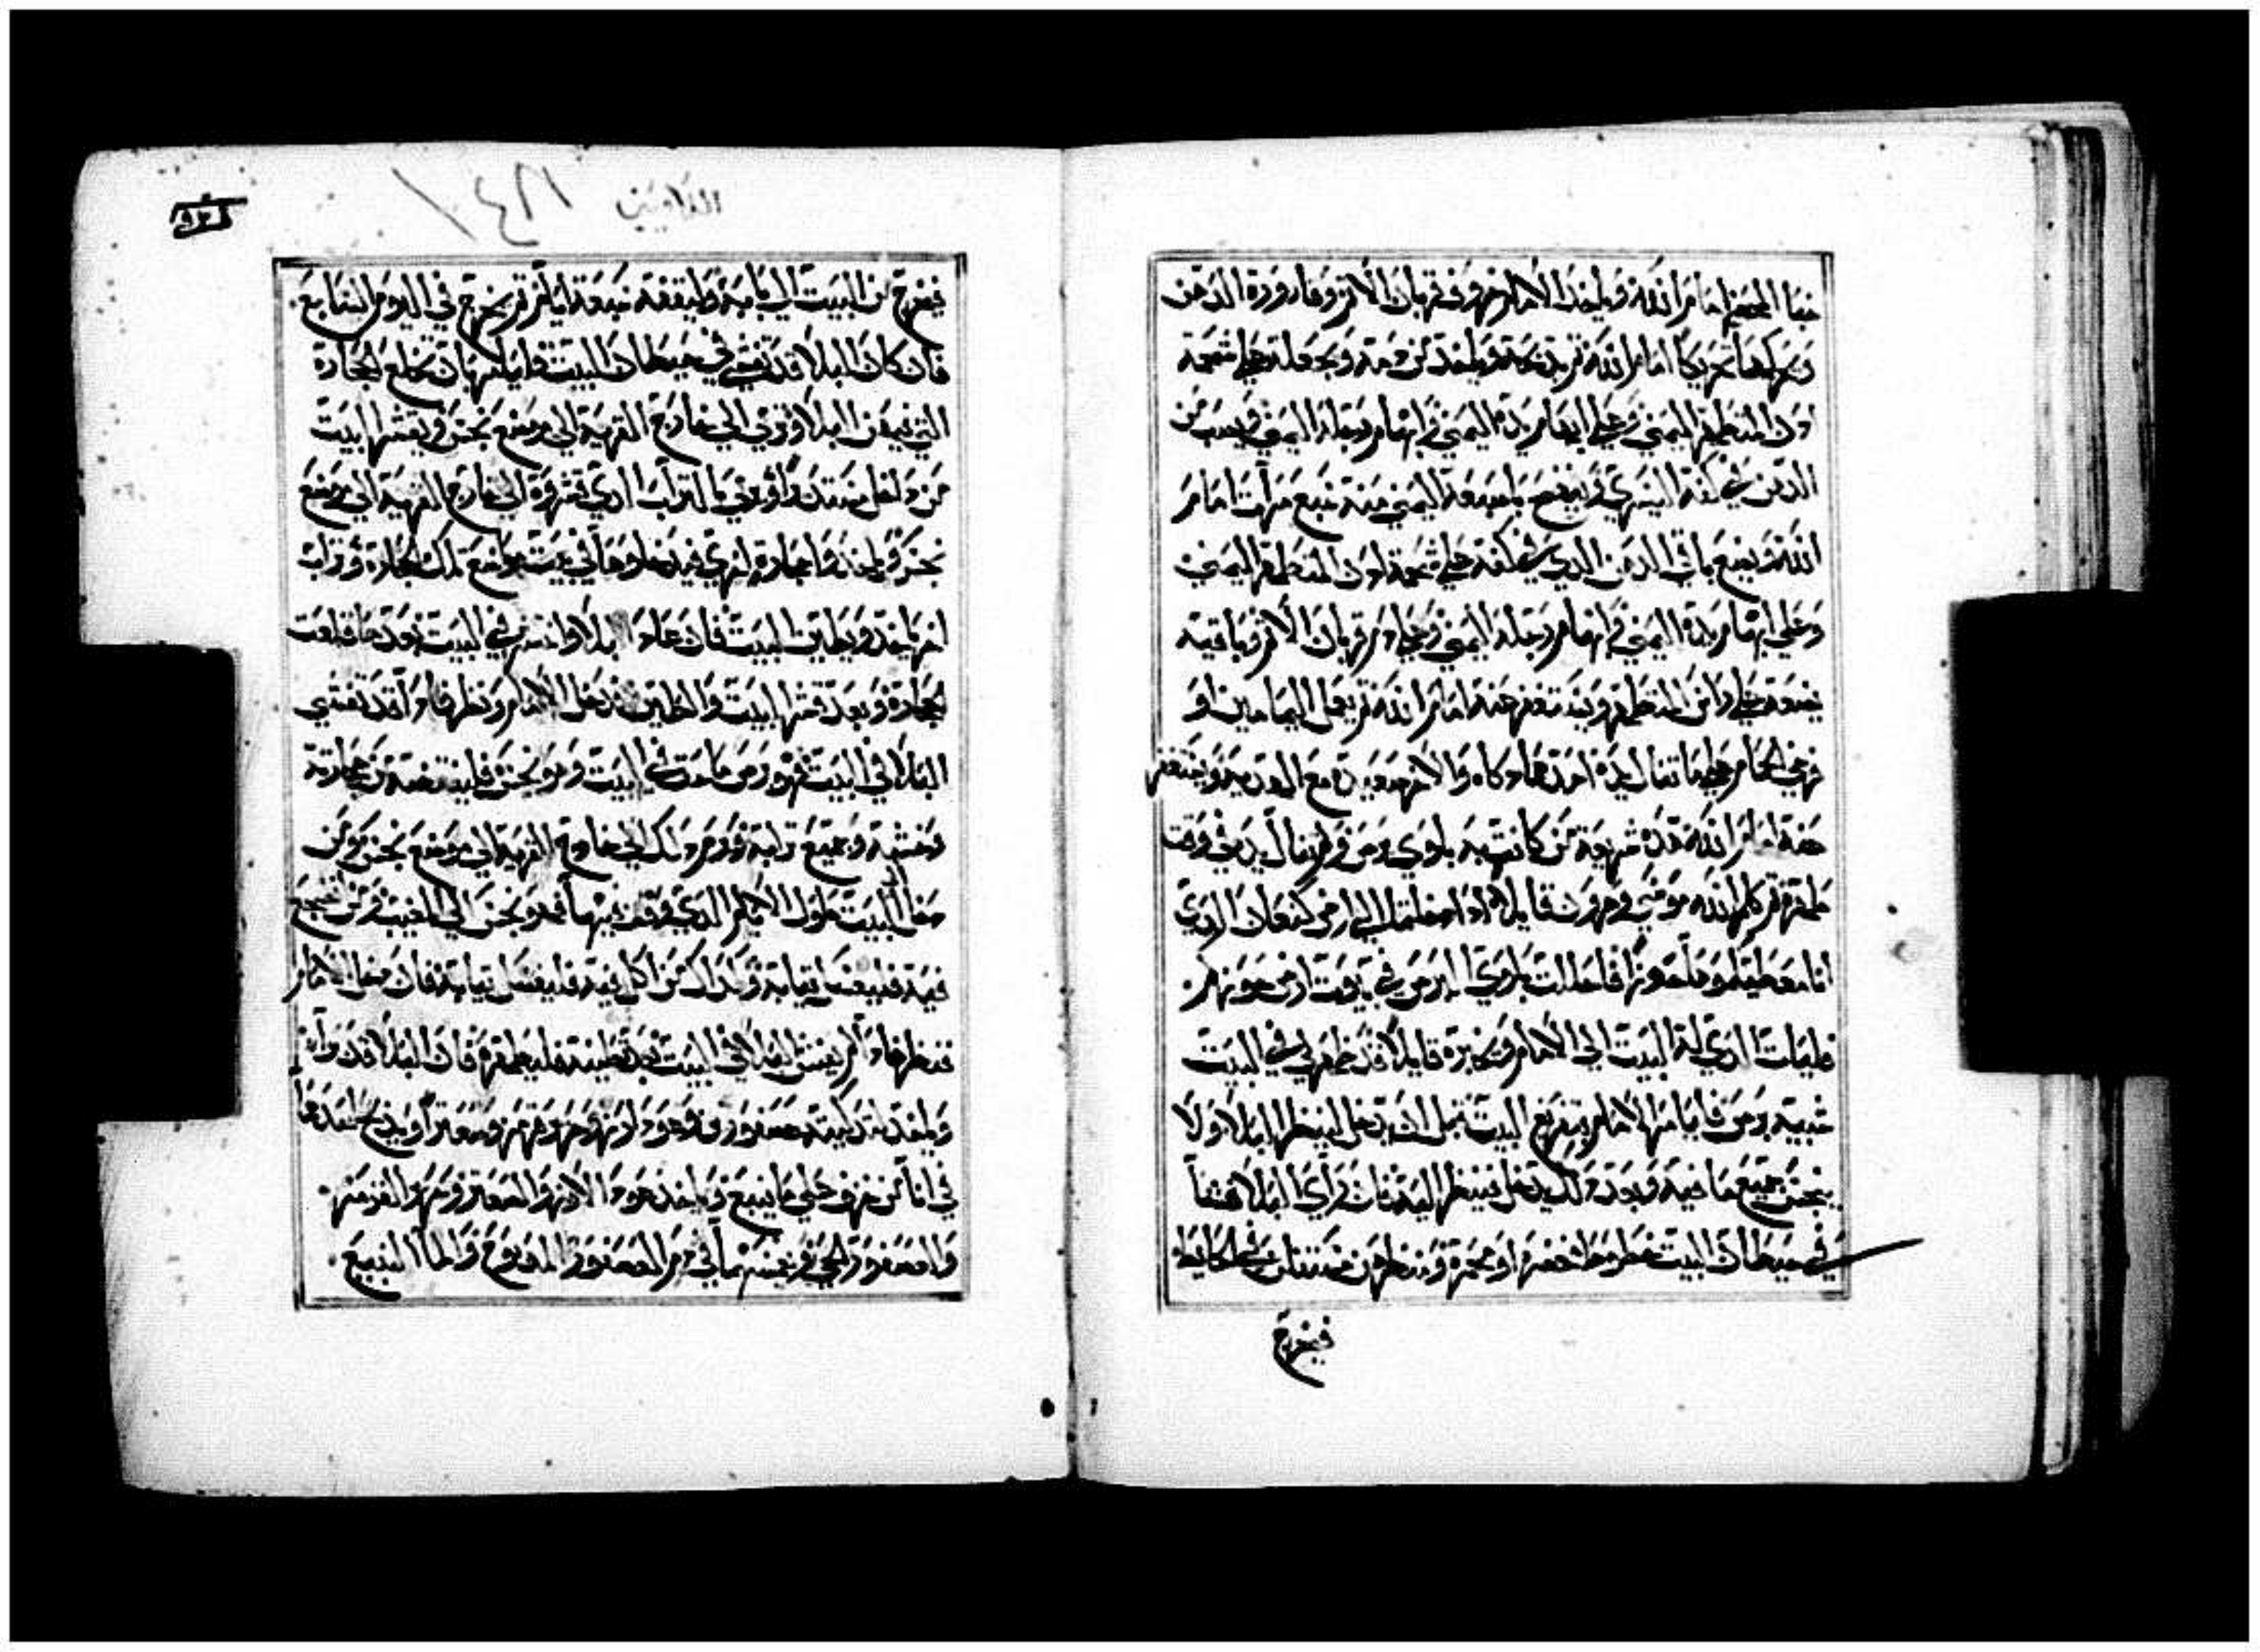 خبا المحضر امام الله وياخذ الامام خروف قربان الاثم وقارورة الدهن
ويحركها تحريكا امام الله ثم يذبحه وياخذ من دمه ويجعله على شحمة
اذن المتطهر اليمنى وعلى ابهام يده اليمنى وابهام رجله اليمنى ويصب من
الدهن في كفه اليسرى وينضح باصبعه اليمنى منه سبع مرات امام
الله ويضع باقي الدهن الذي في كفه على شحمة اذن المتطهر اليمنى
وعلى ابهام يده اليمنى وابهام رجله اليمنى وعلى دم قربان الاثم وباقيه
يضعه على راس المتطهر ويستغفر عنه امام الله ثم يعمل اليمامين او
فرخي الحمام على ما تنال يده احدهما زكاه والاخر صعيدة مع الهدية ويستغفر
عنه امام الله هذه شريعة من كانت به بلوى برص ولم تنال يده في وقت
طهره ثم كلم الله موسى وهرون قايلا اذا دخلتما الى ارض كنعان الذي
انا معطيكموها حوزا فاحللت بلوى البرص في بيوت ارض حوزكم
فليات الذي له البيت الى الامام ويخبره قايلا قد ظهر لي في البيت
شبيه برص فيامر الامام بتفريغ البيت قبل ان يدخل لينظر البلا ولا
ينجس جميع ما فيه وبعد ذلك يدخل فينظر اليه فان راى البلا فشا
في حيطان البيت خطوط خضر او محمرة ومنظرهن مستفل من الحايط
فيخرج
اللاويين ١٦٤
٩٣
فيخرج من البيت الى بابه ويقفله سبعة ايام ثم يخرج في اليوم السابع
فان كان البلا قد تفشى في حيطان البيت فليامر بان تخلع الحجارة
التي فيهن البلا وترمى الى خارج القرية الى موضع نجس ويقشر البيت
من داخل مستديرا ويرمى بالتراب الذي قشروه الى خارج القرية الى موضع
نجس وياخذوا حجارة اخرى فيدخلوها في البيت موضع تلك الحجارة وتراب
اخر ياخذ ويطين البيت فان عاد البلا وانتشر في البيت بعد ما قلعت
الحجارة وبعد قشر البيت والطين فدخل الامام ونظر فاذا قد تفشى
البلا في البيت فهو برص ماحق في البيت وهو نجس فلينقضه من حجارته
وخشبه وجميع ترابه ويرم ذلك الى خارج القرية الى موضع نجس ومن
دخل البيت طول الايام الذي وقف فيها فهو نجس الى المغيب ومن انضجع
فيه فليغسل ثيابه وكذلك من اكل فيه فليغسل ثيابه فان دخل الامام
فنظر فاذا لم يفش البلا في البيت بعد تطيينه فليطهره فان البلا قد زال
وياخذ لتزكيته عصفورين وعود ارز وحمرة قرمز وصعتر ويذبح احدهما
في انا من خزف على ما ينبع وياخذ عود الارز والصعتر وحمرة القرمز
والعصفور الحي ويغمسها في دم العصفور المذبوح والما النبيع